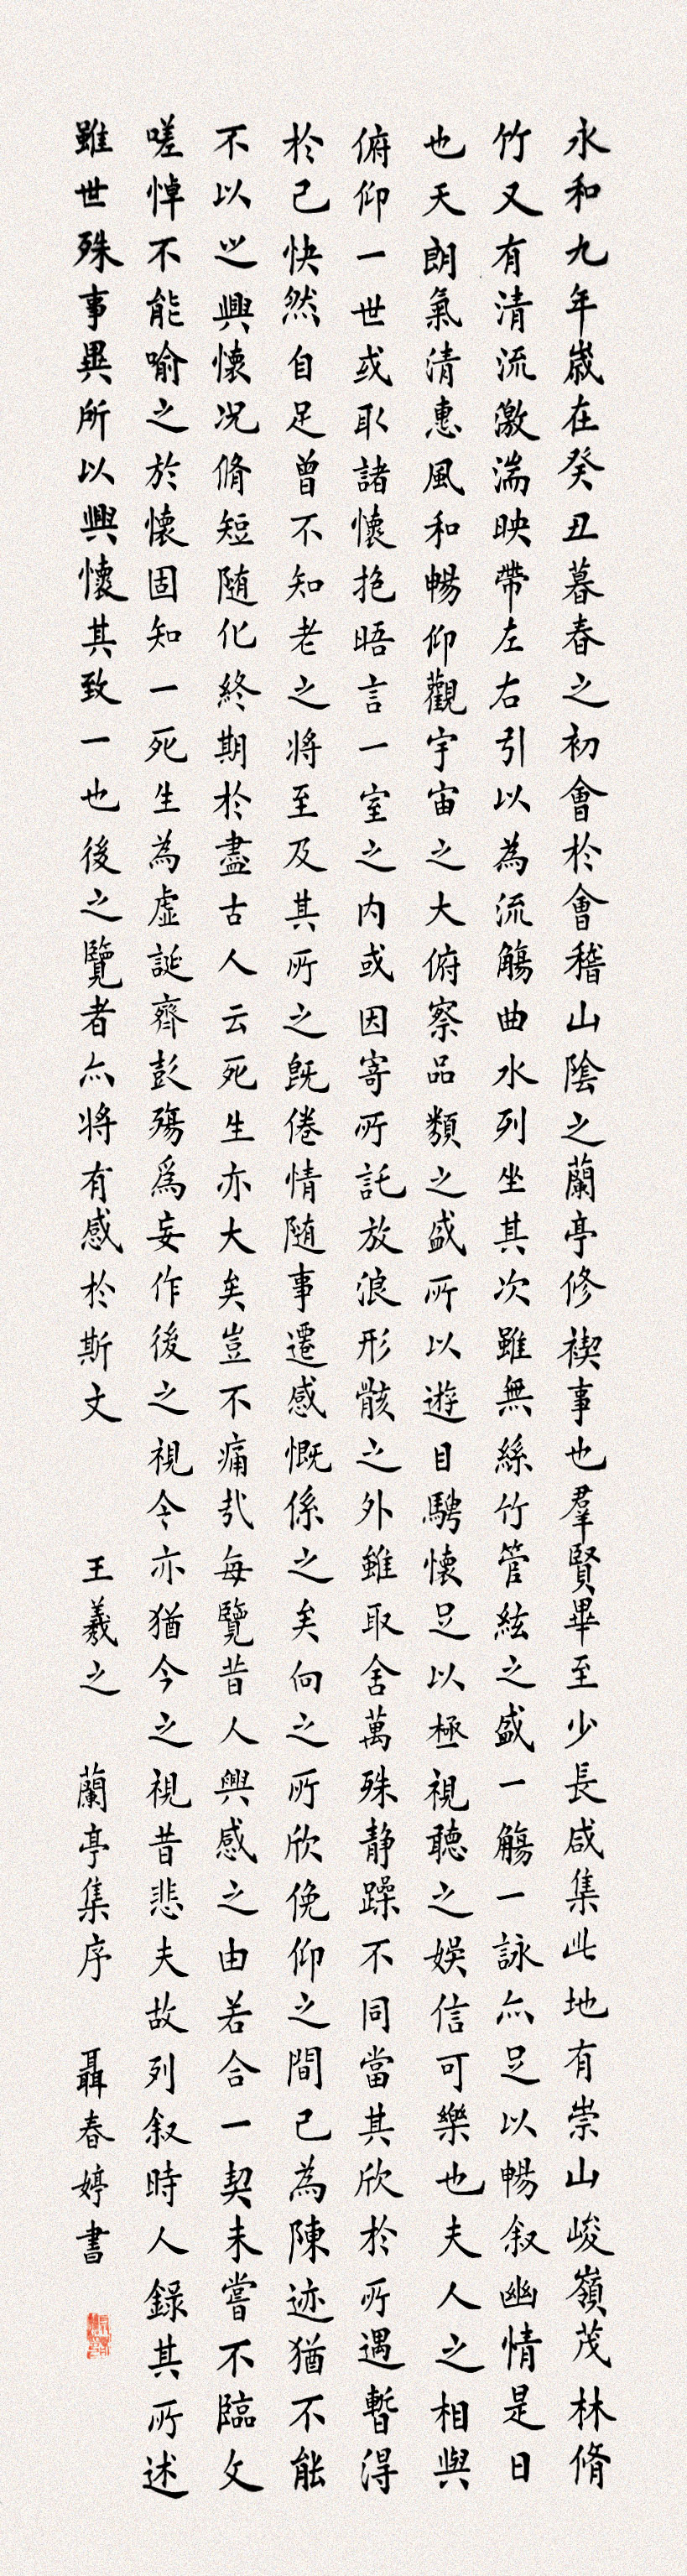 永和九年歲在癸丑暮春之初會於會稽山陰之蘭亭修禊事也羣賢畢至少長咸集此地有崇山峻嶺茂林脩
竹又有清流激湍映帶左右引以為流觴曲水列坐其次雖無絲竹管絃之盛一觴一詠亦足以暢叙幽情是日
也天朗氣清惠風和暢仰觀宇宙之大俯察品類之盛所以遊目騁懷足以極視聽之娛信可樂也夫人之相與
俯仰一世或取諸懷抱晤言一室之內或因寄所託放浪形骸之外雖取舍萬殊静躁不同當其欣於所遇暫得
於己快然自足曾不知老之將至及其所之既倦情随事遷感慨係之矣向之所欣俛仰之間已為陳迹猶不能
不以之興懷况脩短随化終期於盡古人云死生亦大矣豈不痛哉每覽昔人興感之由若合一契未嘗不臨文
嗟悼不能喻之於懷固知一死生為虛誕齊彭殤爲妄作後之視今亦猶今之視昔悲夫故列叙時人錄其所述
雖世殊事異所以興懷其致一也後之覽者亦將有感於斯文 王羲之 蘭亭集序 聶春婷書